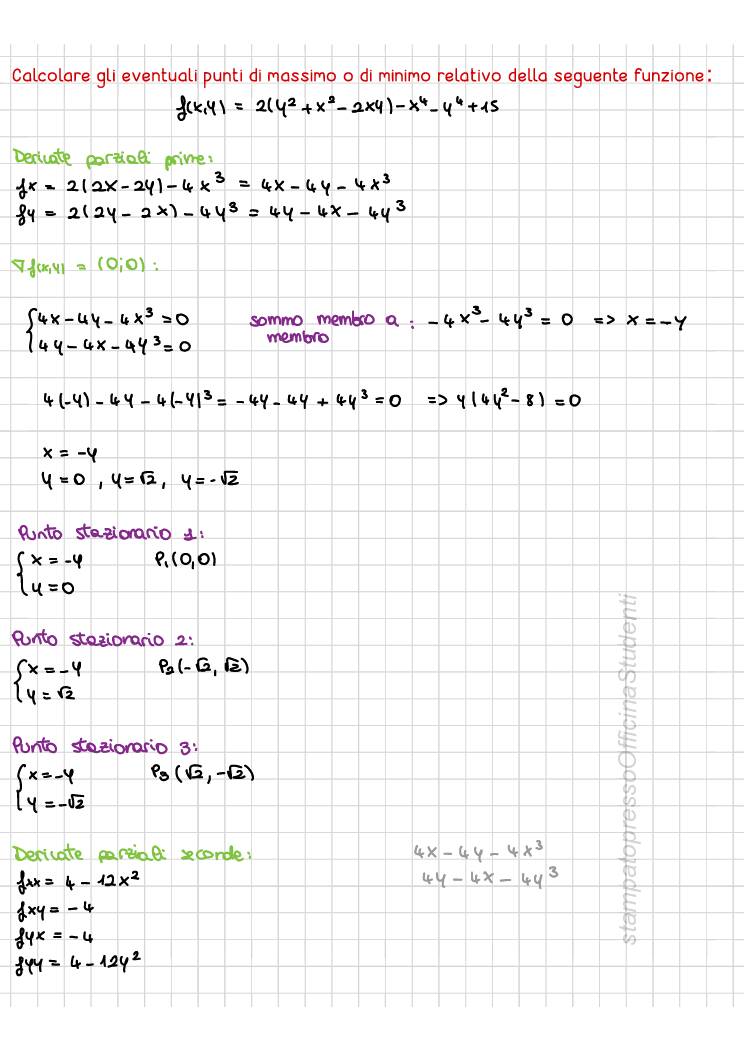 Calcolare gli eventuali punti di massimo o di minimo relativo della seguente funzione:
f(x,y) = 2(y² + x² - 2xy) - x⁴ - y⁴ + 15
Derivate parziali prime:
fx = 2(2x - 2y) - 4x³ = 4x - 4y - 4x³
fy = 2(2y - 2x) - 4y³ = 4y - 4x - 4y³
∇f(x,y) = (0;0):
{4x - 4y - 4x³ = 0 sommo membro a membro : -4x³ - 4y³ = 0 => x = -y
4y - 4x - 4y³ = 0
4(-y) - 4y - 4(-y)³ = -4y - 4y + 4y³ = 0 => y(4y² - 8) = 0
x = -y
y = 0 , y = √2 , y = -√2
Punto stazionario 1:
{x = -y P₁(0,0)
y = 0
Punto stazionario 2:
{x = -y P₂(-√2, √2)
y = √2
Punto stazionario 3:
{x = -y P₃(√2, -√2)
y = -√2
Derivate parziali seconde: 4x - 4y - 4x³
fxx = 4 - 12x² 4y - 4x - 4y³
fxy = -4
fyx = -4
fyy = 4 - 12y²
stampatopressoOfficinaStudenti